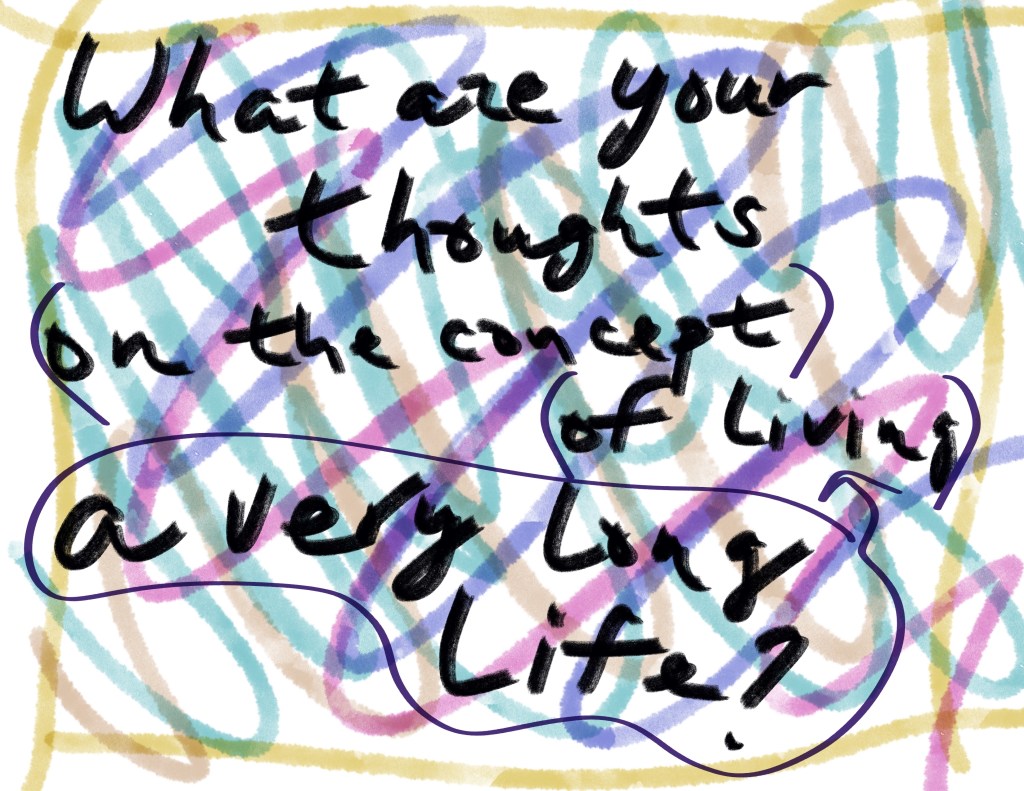 What are your
thoughts
(on the concept)
(of Living)
a very Long
Life?